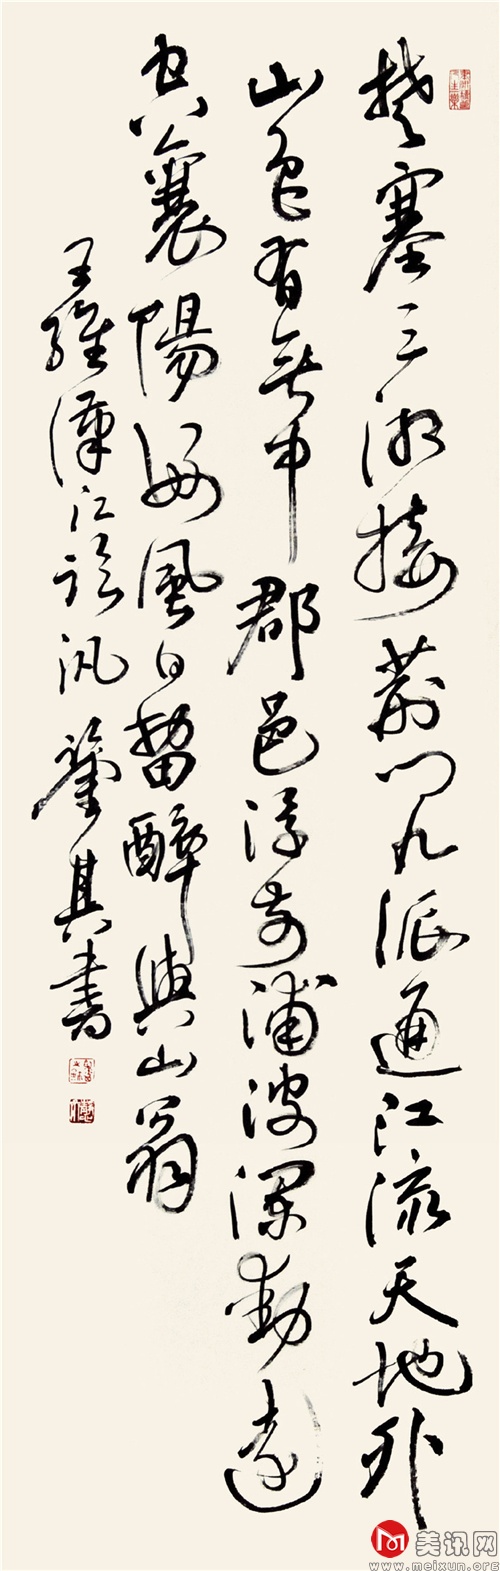 楚塞三湘接荆門九派通江流天地外
山色有無中郡邑浮前浦波瀾動遠
空襄陽好風日留醉與山翁
王維漢江臨汎 其書
美讯网
www.meixun.org